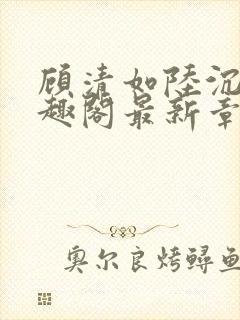 顾清如陸沉
趣阁最新章
奥尔良烤鲟鱼